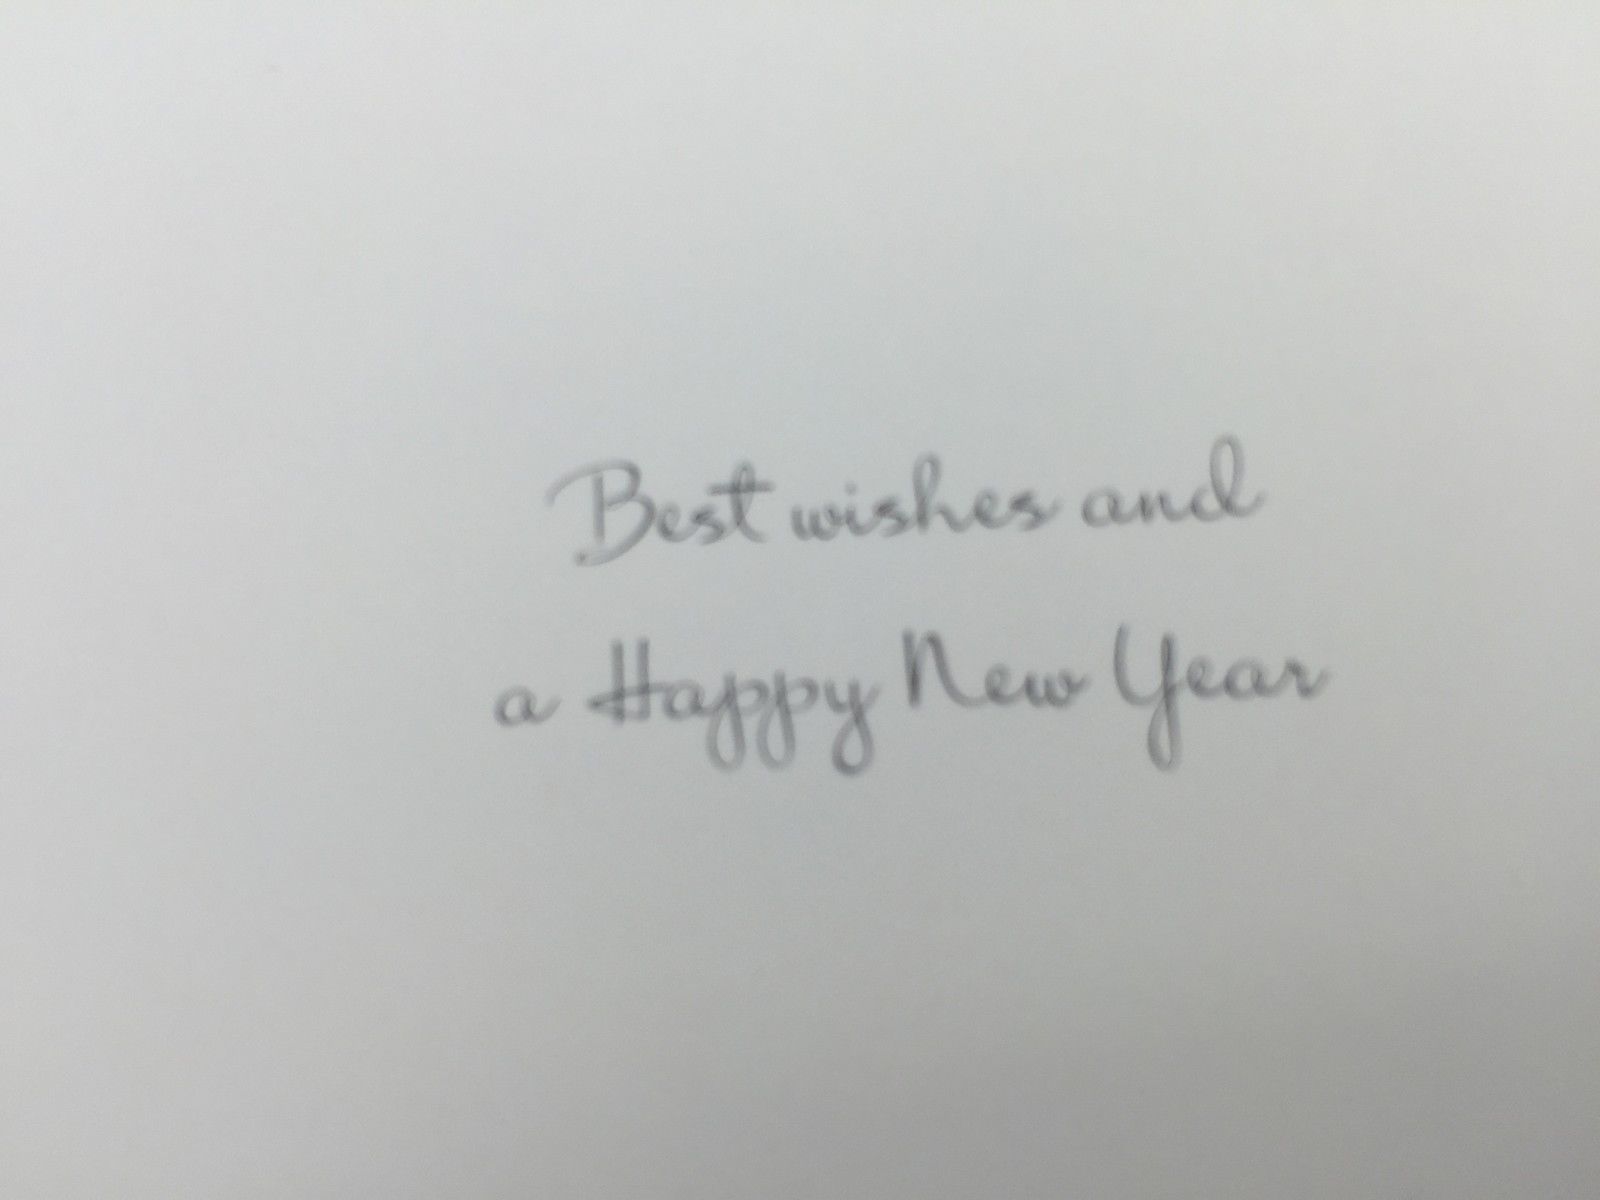 Best wishes and
a Happy New Year